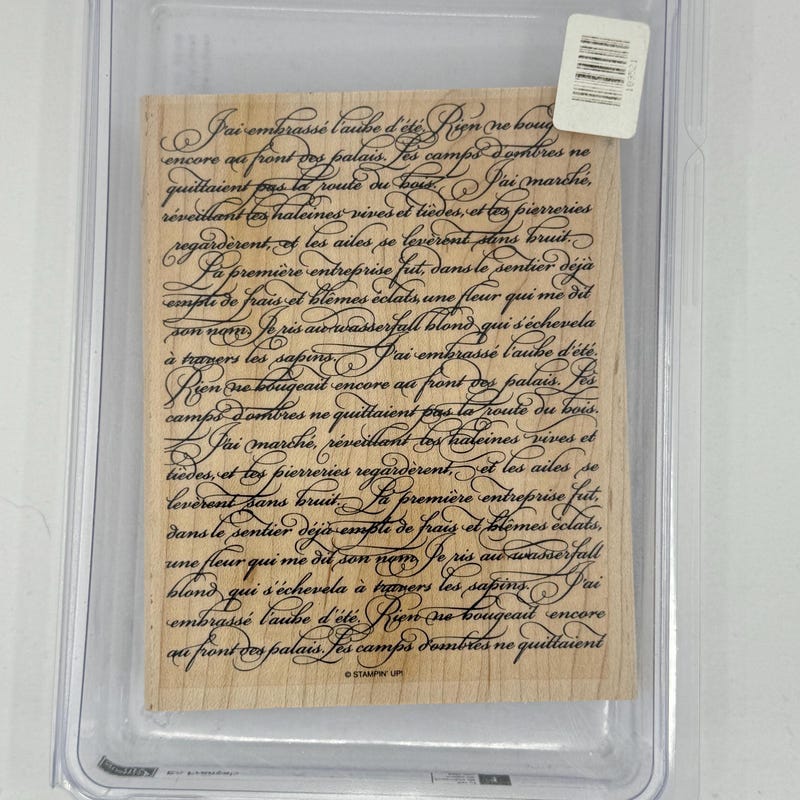 J'ai embrassé l'aube d'été. Rien ne boug
encore au front des palais. Les camps d'ombres ne
quittaient pas la route du bois. J'ai marché,
réveillant les haleines vives et tièdes, et les pierreries
regardèrent, et les ailes se levèrent sans bruit.
La première entreprise fut, dans le sentier déjà
empli de frais et blêmes éclats, une fleur qui me dit
son nom. Je ris au wasserfall blond qui s'échevela
à travers les sapins. J'ai embrassé l'aube d'été.
Rien ne bougeait encore au front des palais. Les
camps d'ombres ne quittaient pas la route du bois.
J'ai marché, réveillant les haleines vives et
tièdes, et les pierreries regardèrent, et les ailes se
levèrent sans bruit. La première entreprise fut,
dans le sentier déjà empli de frais et blêmes éclats,
une fleur qui me dit son nom. Je ris au wasserfall
blond qui s'échevela à travers les sapins. J'ai
embrassé l'aube d'été. Rien ne bougeait encore
au front des palais. Les camps d'ombres ne quittaient
© STAMPIN' UP!
En Français